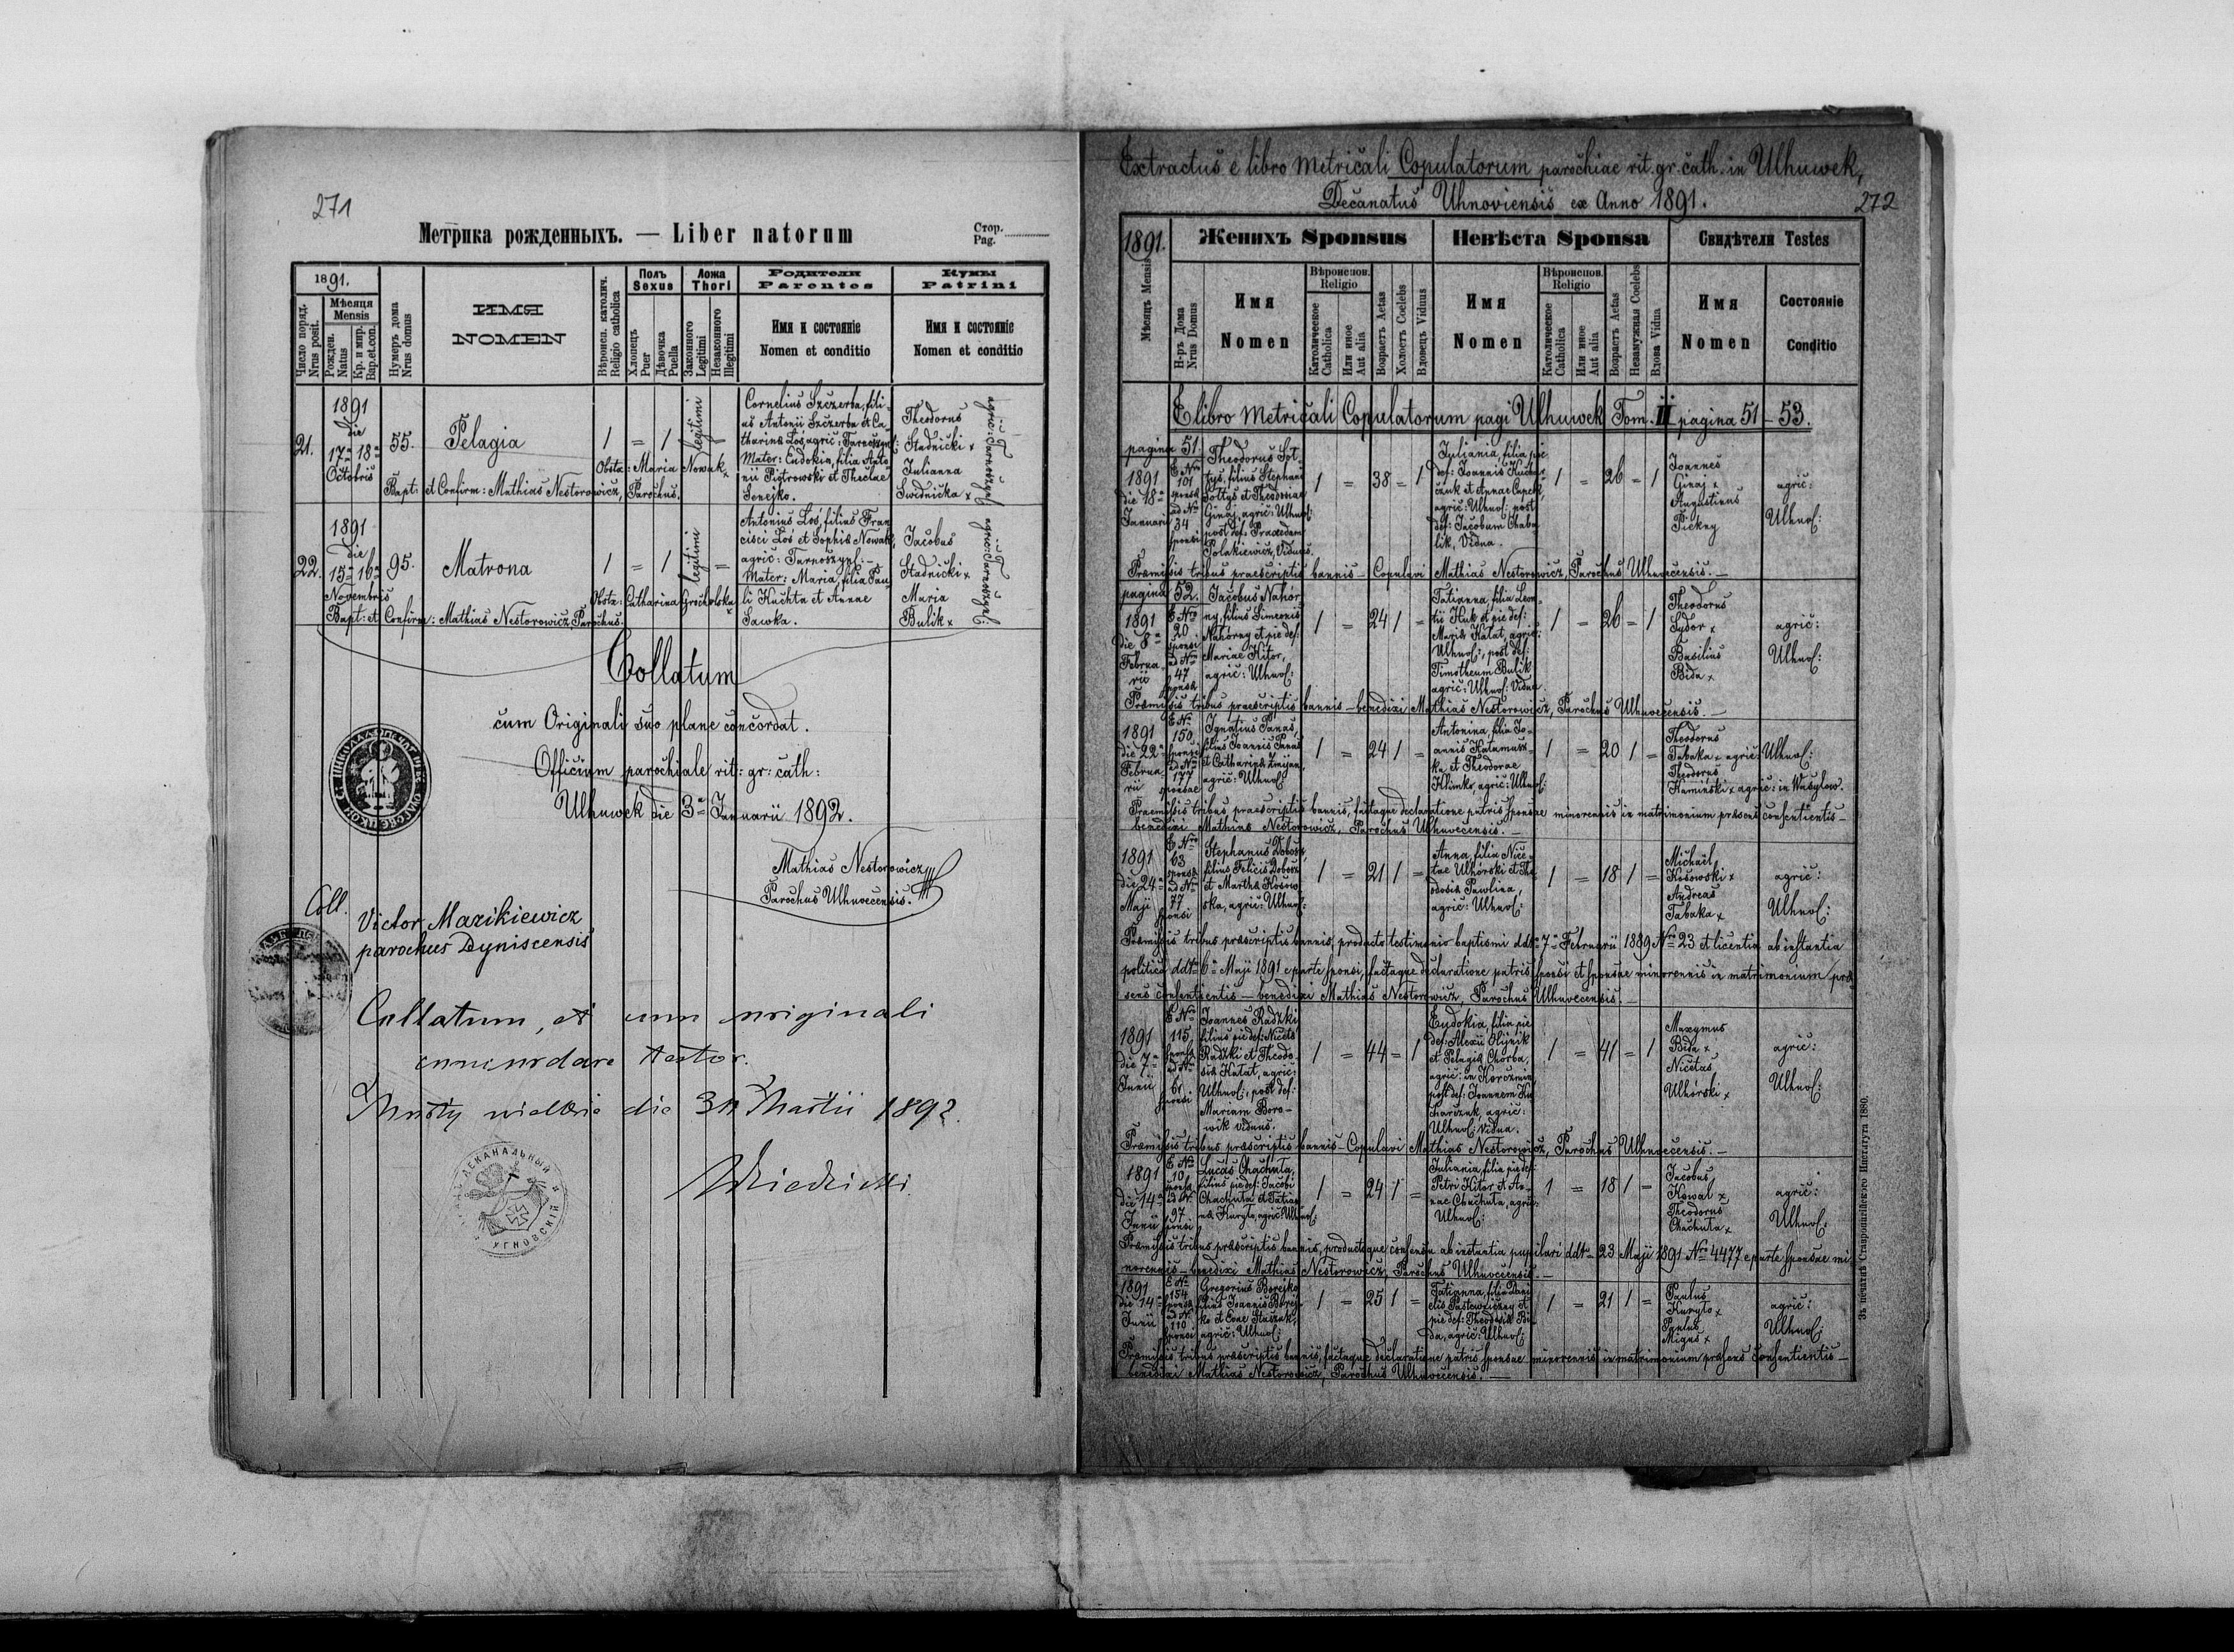 271
Метрика рожденныхъ. — Liber natorum
Стор.
Pag.
1891.
Число поряд.
Nrus posit.
Мѣсяця
Mensis
Рожден.
Natus
Кр. и мир.
Bap. et con.
Нумеръ дома
Nrus domus
ИМЯ
NOMEN
Вѣроисп. католич.
Religio catholica
Полъ
Sexus
Хлопецъ
Puer
Дѣвочка
Puella
Ложа
Thori
Законного
Legitimi
Незаконного
Illegitimi
Родители
Parentes
Имя и состояніе
Nomen et conditio
Кумы
Patrini
Имя и состояніе
Nomen et conditio
21.
1891
die
17ª 18ª
Octobris
55.
Pelagia
1 = 1 legitimi
Cornelius Szczerba, fili-
us Antonii Szczerba et Ca-
tharina Łoś, agric: Tarnoszyn:
Mater: Eudokia, filia Anto-
nii Piotrowski et Theclae
Senejko.
Theodorus
Stadnicki x
Julianna
Swidnicka x
agric: Tarnoszyn:
Obstx: Maria Nowak x
Bapt: et Confirm: Mathias Nestorowicz, Parochus.
22.
1891
die
15ª 16ª
Novembris
95.
Matrona
1 = 1 legitimi =
Antonius Łoś, filius Fran
cisci Łoś et Sophia Nowak,
agric: Tarnoszyn: -
Mater: Maria, filia Pau-
li Kuchta et Annae
Sawka.
Jacobus
Stadnicki x
Maria
Bulik x
agric: Tarnoszyn:
Obstx: Catharina Grocholska x
Bapt: et Confirm: Mathias Nestorowicz, Parochus.
Collatum
cum Originali suo plane concordat.
Officium parochiale rit: gr: cath:
Ulhuwek die 3ª Januarii 1892.
Mathias Nestorowicz
Parochus Ulhuvecensis.
Coll.
Victor Mazikiewicz
parochus Dyniscensis
Collatum, et cum originali
concordare testor.
die Martii 1892.
ДЕКАНАЛЬНЫЙ
УГНОВСКІЙ
Extractus e libro metricali Copulatorum parochiae rit. gr. cath. in Ulhuwek,
Decanatus Uhnoviensis ex Anno 1891.
272
1891.
Женихъ Sponsus
Невѣста Sponsa
Свидѣтели Testes
Мѣсяцъ Mensis
Н-ръ Дома
Nrus Domus
Имя
Nomen
Вѣроиспов.
Religio
Католическое
Catholica
Или иное
Aut alia
Возрастъ Aetas
Холостъ Coelebs
Вдовецъ Viduus
Имя
Nomen
Вѣроиспов.
Religio
Католическое
Catholica
Или иное
Aut alia
Возрастъ Aetas
Незамужная Coelebs
Вдова Vidua
Имя
Nomen
Состояніе
Conditio
E libro metricali Copulatorum pagi Ulhuwek Tom. II pagina 51 – 53.
pagina 51.
1891
die 18ª
Januarii
E Nro
101
sponsa
ad No
34
sponsi
Theodorus Soł-
tys, filius Stephani
Sołtys et Theodosiae
Ginaj, agric: Ulhuv:
post def: Praxedam
Polakiewicz, Viduus.
1 = 38 = 1
Juliania, filia pie
def: Joannis Kuchar-
czuk et Annae Capek
agric: Ulhuv: post
def: Jacobum Chaba-
lik, Vidua.
1 = 26 = 1
Joannes
Ginaj x
Augustinus
Piekny
agric:
Ulhuv:
Praemissis tribus praescriptis bannis – Copulavi Mathias Nestorowicz, Parochus Ulhuvecensis. —
pagina 52.
1891
die 8ª
Februa-
rii
E Nro
20
sponsi
ad No
47
sponsa
Jacobus Nahor-
ny, filius Simeonis
Nahorny et pie def:
Mariae Kitor,
agric: Ulhuv:
1 = 24 1 =
Tatianna, filia Leon-
tii Huk et pie def:
Maria Kałat, agric:
Ulhuv:, post def:
Timotheum Bulik
agric: Ulhuv: Vidua.
1 = 26 = 1
Theodorus
Sydor x
Basilius
Bida x
agric:
Ulhuv:
Praemissis tribus praescriptis bannis – benedixi Mathias Nestorowicz, Parochus Ulhuvecensis. —
1891
die 22ª
Februa-
rii
E No
150
sponsi
ad No
177
sponsae
Ignatius Panas,
filius Joannis Panas
et Catharina Zmijan,
agric: Ulhuv:
1 = 24 1 =
Antonina, filia Jo-
annis Katamusz-
ka et Theodorae
Klimko, agric: Ulhuv:
1 = 20 1 =
Theodorus
Tabaka x agric: Ulhuv:
Theodorus
Kaminski x agric: in Wasylow.
Praemissis tribus praescriptis bannis, factaque declaratione patris sponsae minorennis in matrimonium praesens consentientis –
benedixi Mathias Nestorowicz, Parochus Ulhuvecensis. —
1891
die 24ª
Maji
E Nro
63
sponsa
ad No
77
sponsi
Stephanus Dobosz,
filius Felicis Dobosz
et Martha Kosow-
ska, agric: Ulhuv:
1 = 21 1 =
Anna, filia Nice-
tae Ulhórski et The
odosia Pawlina,
agric: Ulhuv:
1 = 18 1 =
Michaël
Kosowski x
Andreas
Tabaka x
agric:
Ulhuv:
Praemissis tribus praescriptis bannis, producto testimonio baptismi ddto 7ª Februarii 1889 Nro 23 et licentia ab instantia
politica ddto 6ª Maji 1891 e parte sponsi, factaque declaratione patris sponsi et sponsae minorennis in matrimonium prae-
sens consentientis – benedixi Mathias Nestorowicz, Parochus Ulhuvecensis. —
1891
die 7ª
Junii
E Nro
115
sponsa
ad No
61
sponsi
Joannes Radzki
filius pie def: Niceta
Radzki et Theodo-
sia Katat, agric:
Ulhuv:, post def:
Mariam Boro-
wik viduus.
1 = 44 = 1
Eudokia, filia pie
def: Alexii Olijnik
et Pelagia Chorba,
agric: in Korczmin,
post def: Joannem Ku
charczuk, agric:
Ulhuv: Vidua.
1 = 41 = 1
Maxymus
Bida x
Nicetas
Ulhórski x
agric:
Ulhuv:
Praemissis tribus praescriptis bannis – Copulavi Mathias Nestorowicz, Parochus Ulhuvecensis. —
1891
die 14ª
Junii
E No
10
sponsa
ad Nr
97
sponsi
Lucas Chachuta,
filius pie def: Jacobi
Chachuta et Tatian-
na Kuryło, agric: Ulhuv:
1 = 24 1 =
Juliania, filia pie def:
Petri Kitor et An-
nae Chachuta, agric:
Ulhuv:
1 = 18 1 =
Jacobus
Kowal x
Theodorus
Chachuta x
agric:
Ulhuv:
Praemissis tribus praescriptis bannis, productoque consensu ab instantia pupilari ddto 23 Maji 1891 Nro 4477 e parte sponsae mi-
norennis – benedixi Mathias Nestorowicz, Parochus Ulhuvecensis. —
1891
die 14ª
Junii
E No
154
sponsa
ad N.
110
sponsi
Gregorius Borejko
filius Joannis Borej-
ko et Evae Staszuk,
agric: Ulhuv:
1 = 25 1 =
Tatianna, filia Dani
elis Pastowiczny et
pie def: Theodosia Bi-
da, agric: Ulhuv:
1 = 21 1 =
Paulus
Kuryło x
Paulus
Migus x
agric:
Ulhuv:
Praemissis tribus praescriptis bannis, factaque declaratione patris sponsae minorennis in matrimonium praesens consentientis –
benedixi Mathias Nestorowicz, Parochus Ulhuvecensis. —
Зъ печатнѣ Ставропигійского Института 1880.